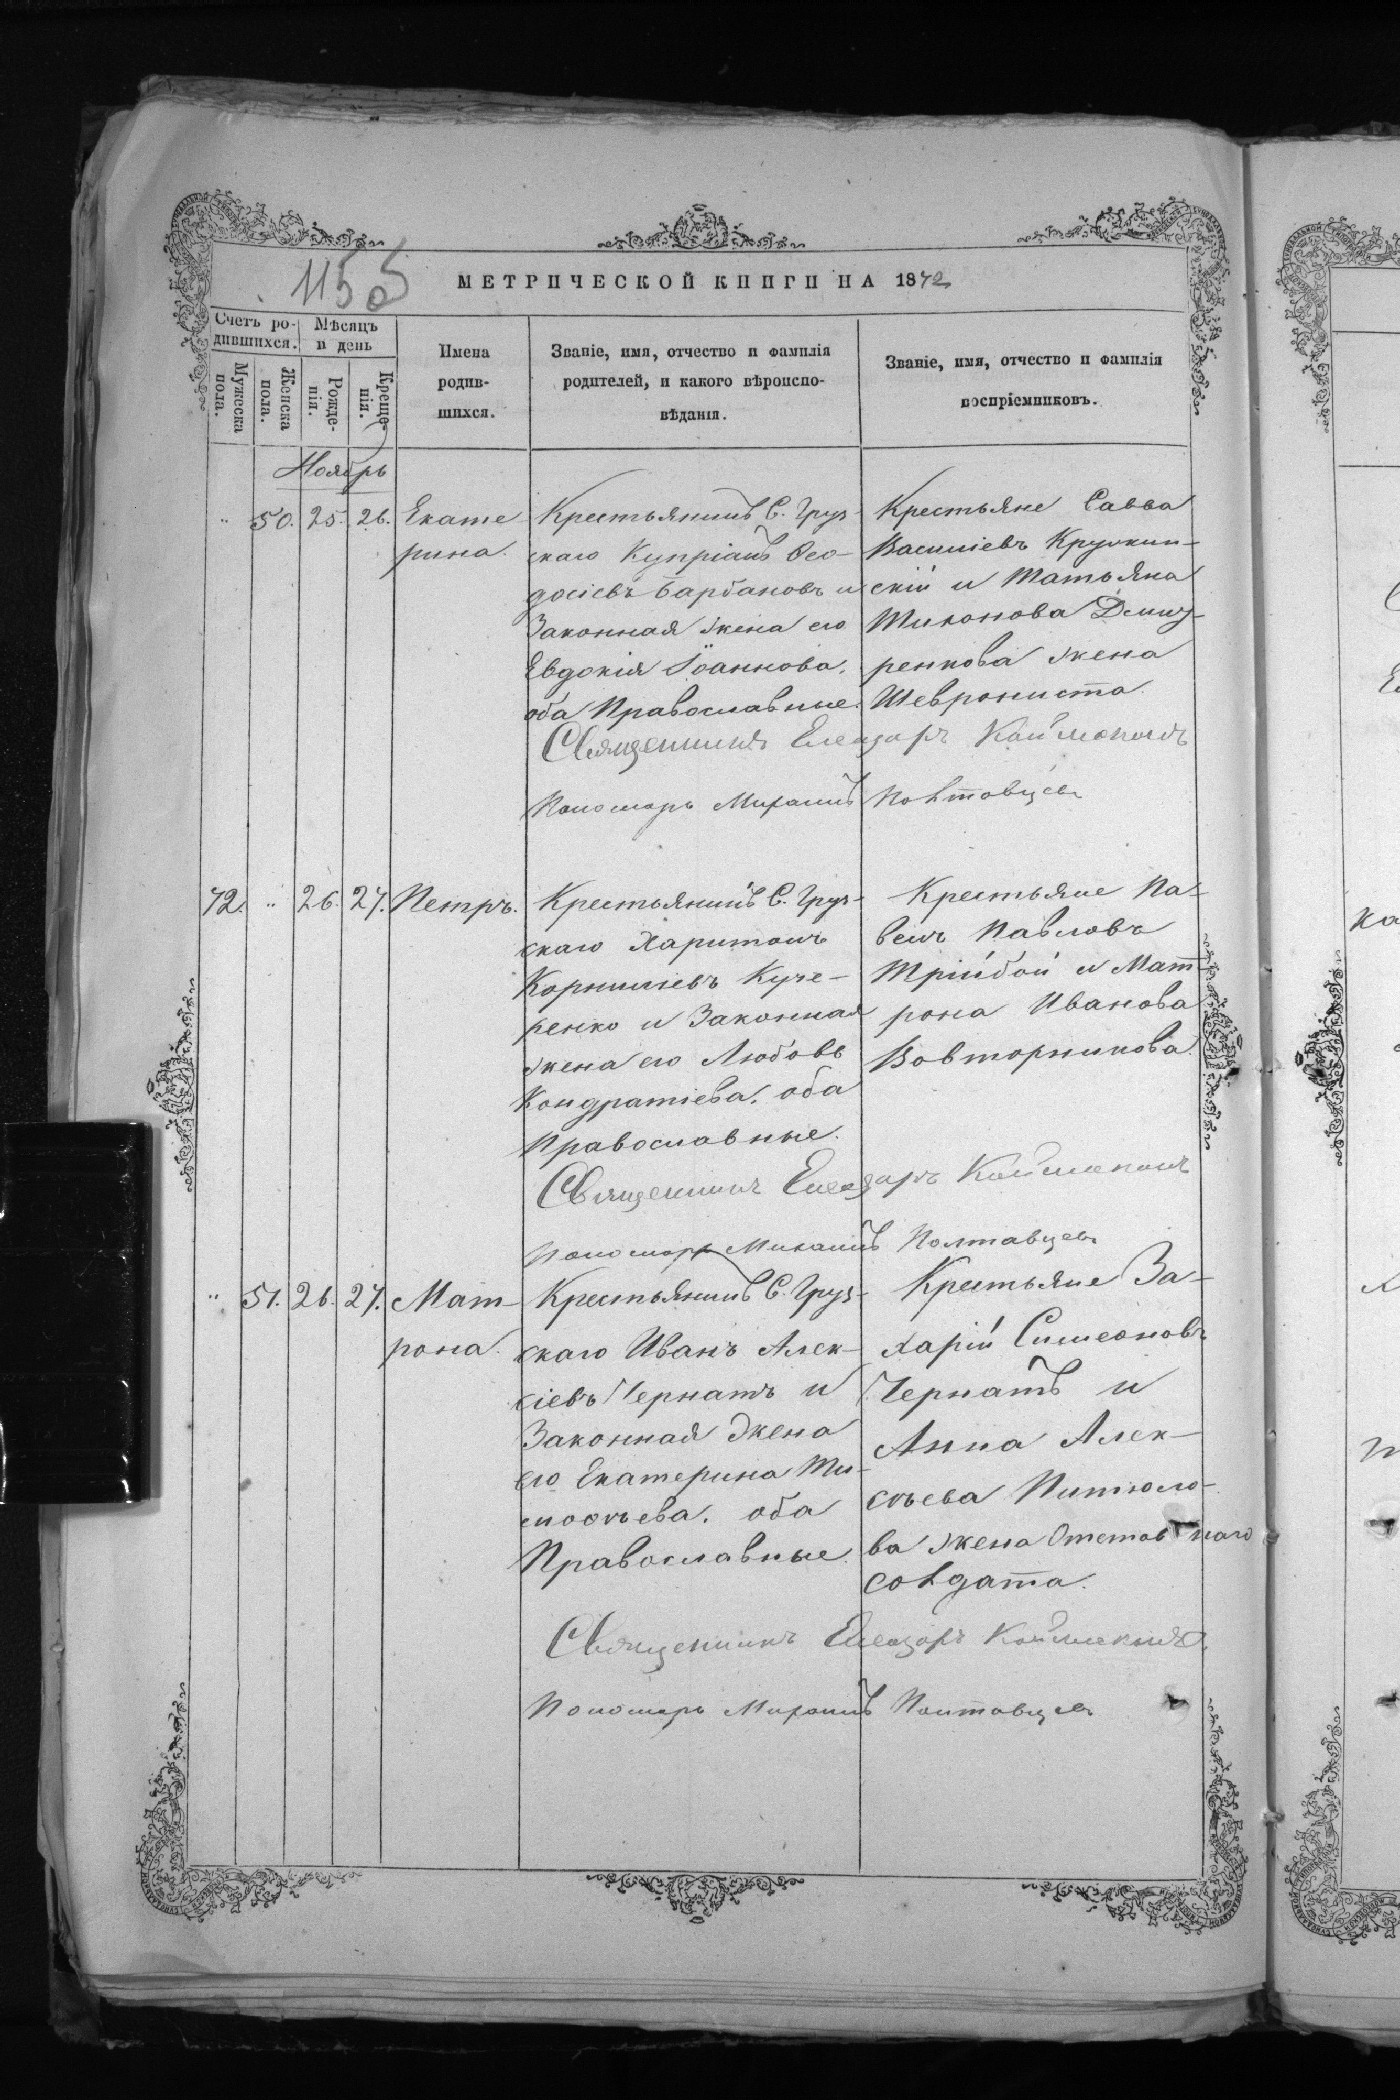 1155
МЕТРИЧЕСКОЙ КНИГИ НА 1872
Счетъ ро-
дившихся.
Мѣсяцъ
и день
Мужеска
пола.
Женска
пола.
Рожде-
нія.
Креще-
нія.
Имена
родив-
шихся.
Званіе, имя, отчество и фамилія
родителей, и какого вѣроиспо-
вѣданія.
Званіе, имя, отчество и фамилія
воспріемниковъ.
Ноябрь
" 50. 25. 26.
Екате
рина.
Крестьянинъ С. Груз-
скаго Купріанъ Ѳео-
досіевъ Барбановъ и
Законная жена его
Евдокія Іоаннова.
оба Православные.
Крестьяне Савва
Василіевъ
скій и Татьяна
Тихонова
ренкова жена
Шеврониста.
Священникъ Елеазаръ
Пономарь Михаилъ Полтавцевъ
72. " 26. 27.
Петръ.
Крестьянинъ С. Груз-
скаго Харитонъ
Корниліевъ Куче-
ренко и Законная
жена его Любовь
Кондратіева. оба
Православные.
Крестьяне Па-
велъ Павловъ
Трійбой и Мат-
рона Иванова
Вовторникова.
Священникъ Елеазаръ
Пономарь Михаилъ Полтавцевъ
" 51. 26. 27.
Мат-
рона.
Крестьянинъ С. Груз-
скаго Иванъ Алек-
сіевъ Чернатъ и
Законная Жена
его Екатерина Ти-
моѳѣева. оба
Православные.
Крестьяне За-
харій Симеоновъ
Чернатъ и
Анна Алек-
сѣева Питюло-
ва жена Отставнаго
солдата.
Священникъ Елеазаръ
Пономарь Михаилъ Полтавцевъ